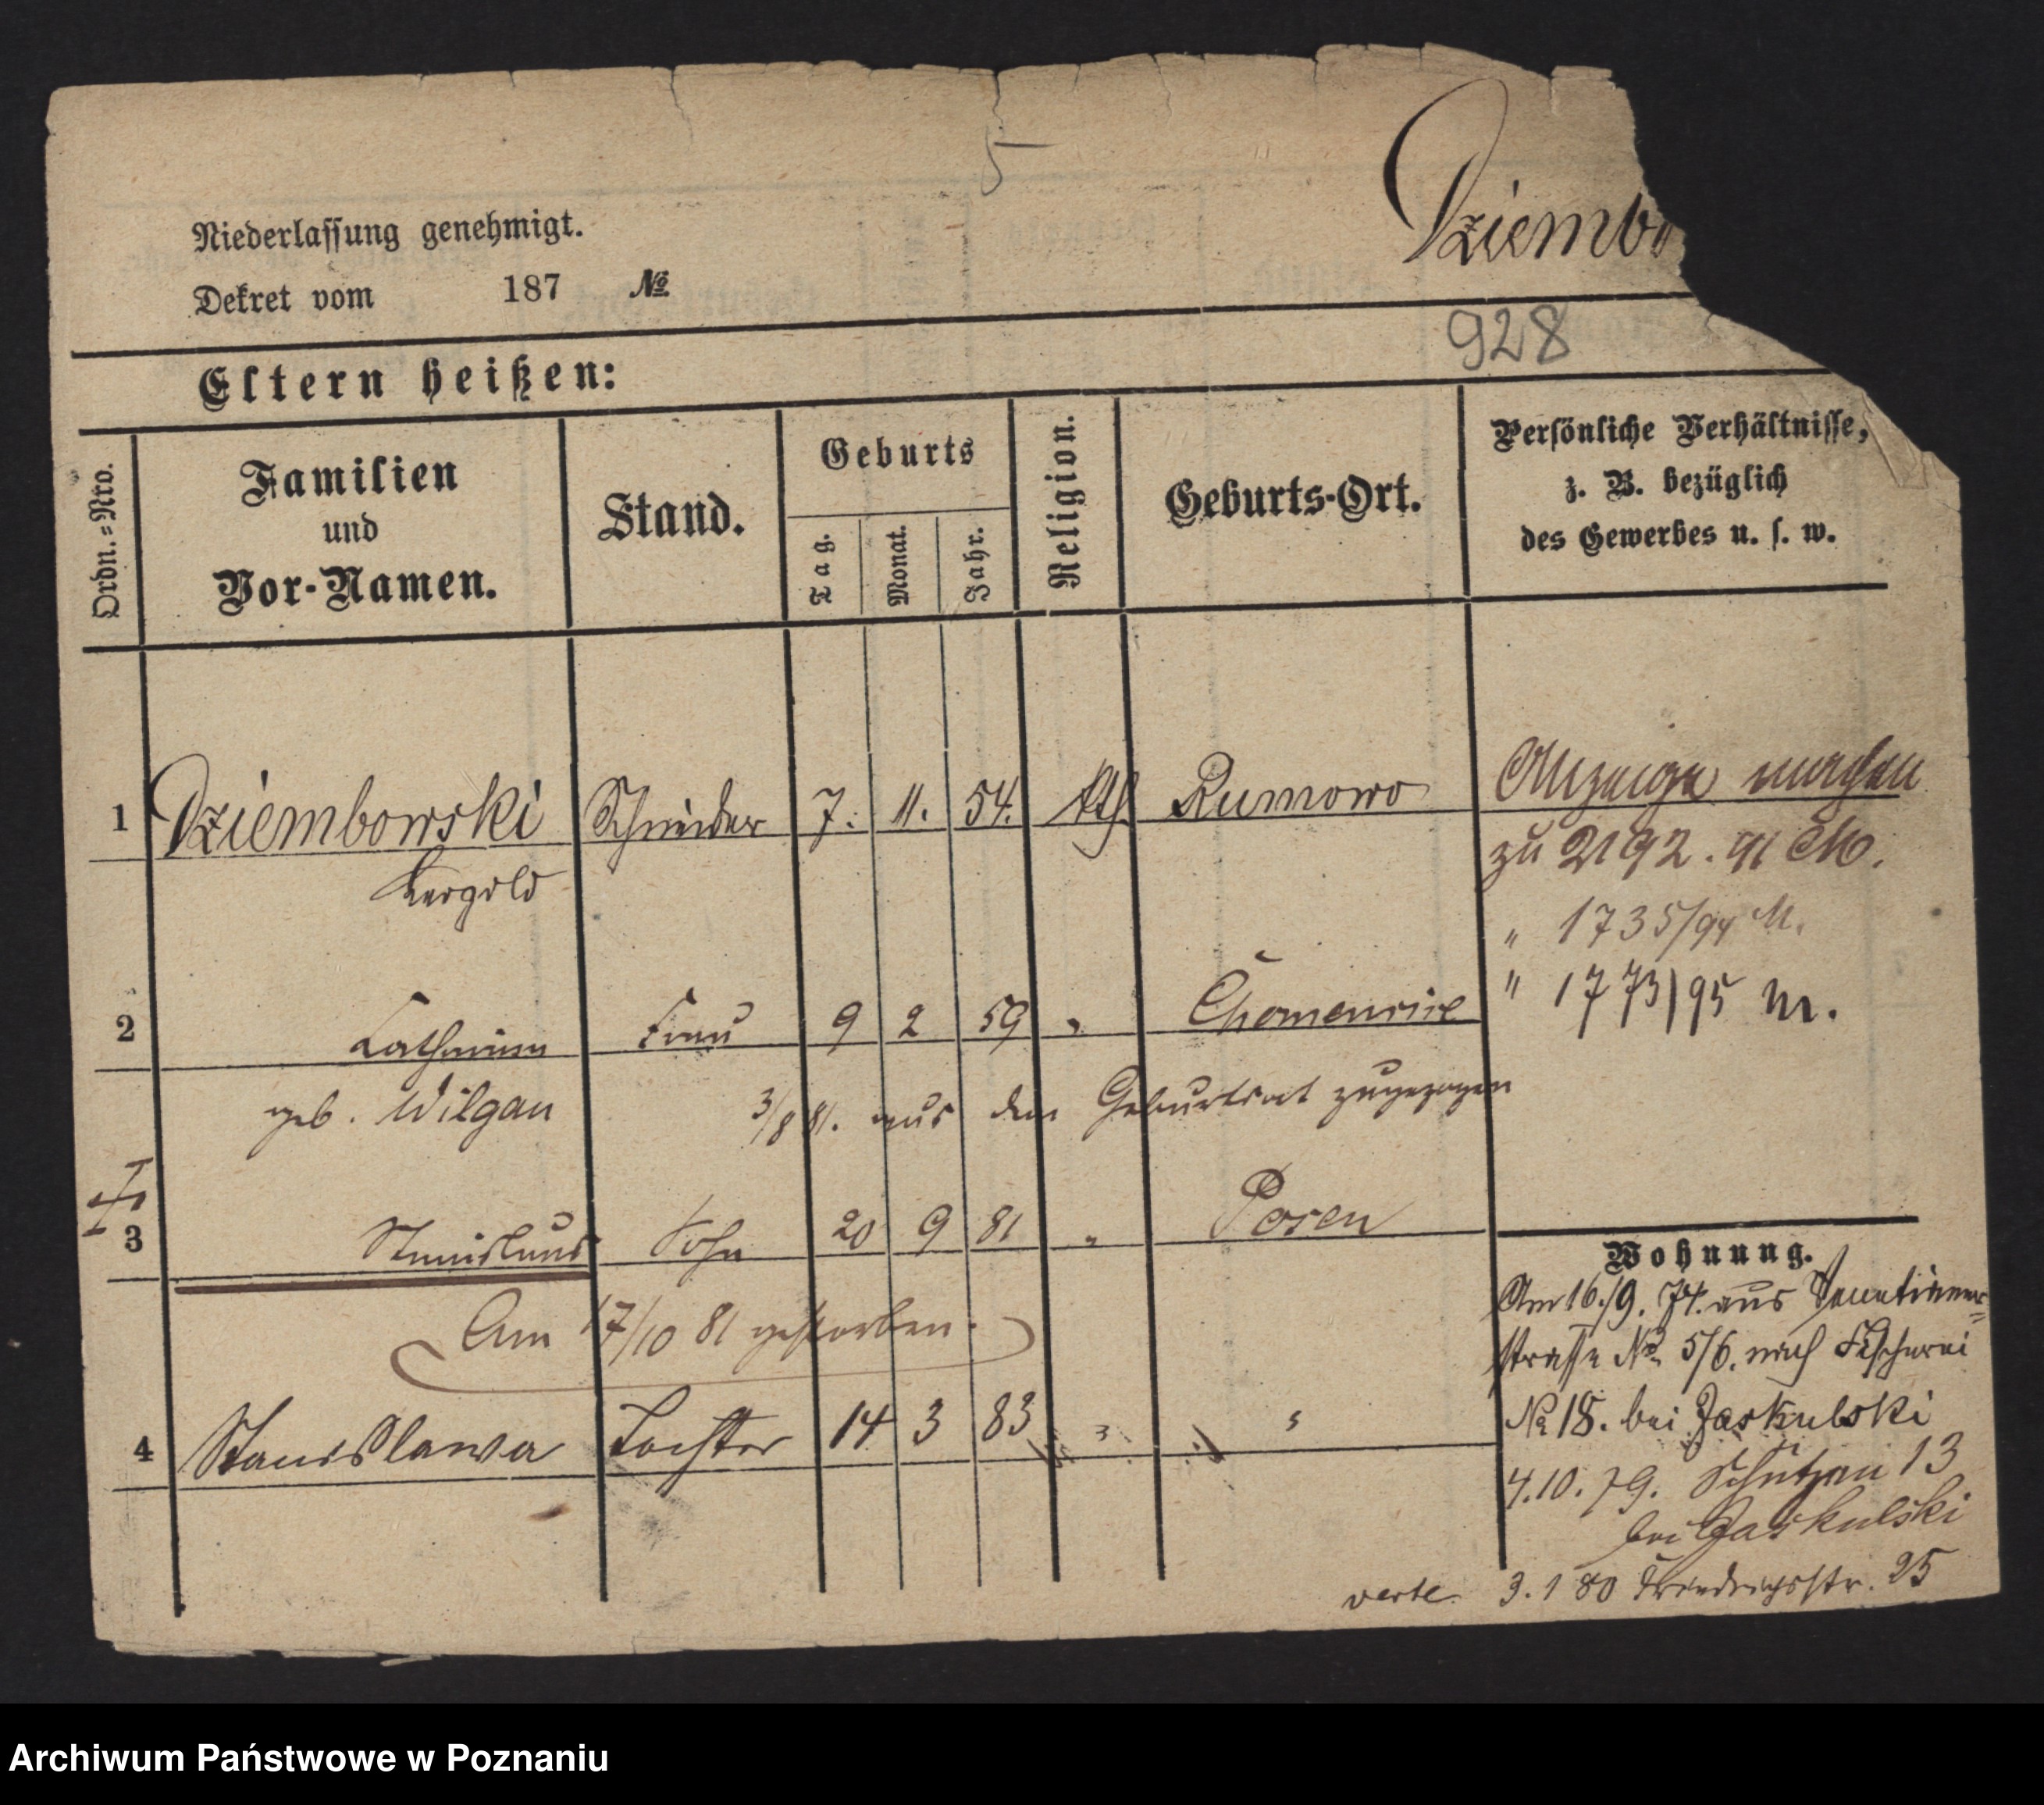 5
Dziembo
Niederlassung genehmigt.
Dekret vom 187 №
928
Eltern heißen:
Ordn.=Nro.
Familien
und
Vor-Namen.
Stand.
Geburts
Tag.
Monat.
Jahr.
Religion.
Geburts-Ort.
Persönliche Verhältnisse,
z. B. bezüglich
des Gewerbes u. s. w.
1 Dziembowski Schneider 7. 11. 54. kth. Rumowo
Anzeige machen
zu 2192. 91 M.
" 1735/94 M.
" 1773/95 M.
2 Catharina Frau 9 2 59 "
geb. Wilgan 3/8 81. aus dem Geburtsort zugezogen
3 Stanislaus Sohn 20 9 81 " Posen
Am 17/10 81 gestorben.
4 Stanislawa Tochter 14 3 83 " "
Wohnung.
Am 16./9. 74. aus Venetianer=
strasse No 5/6. nach Fischerei
No 18. bei Jaskulski
4.10.79. Schützen 13
bei Jaskulski
verte 3.1 80 Friedrichsstr. 25
Archiwum Państwowe w Poznaniu